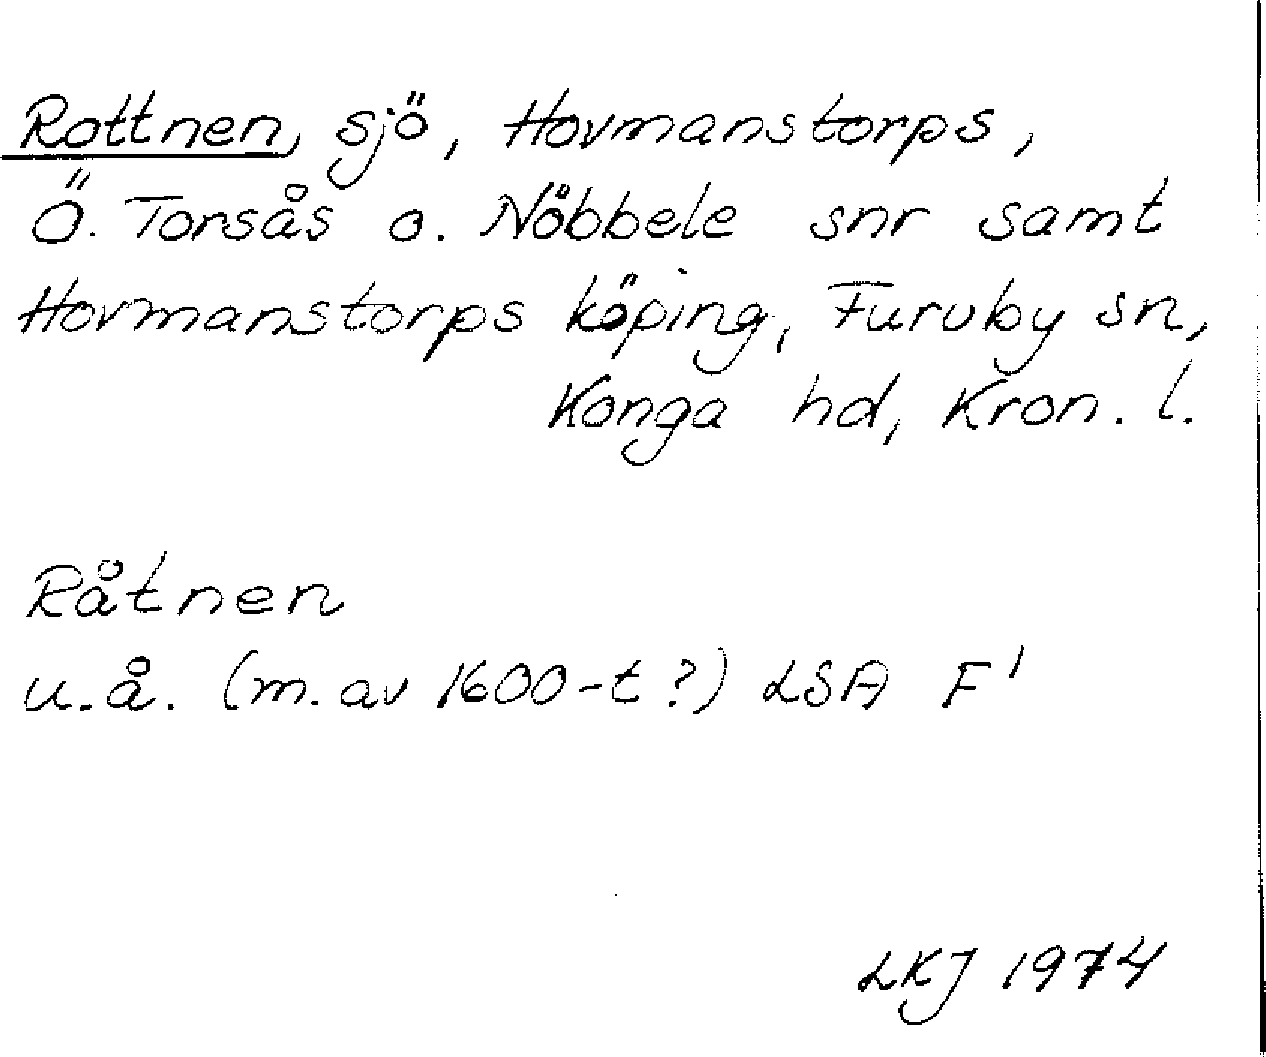 Rottnen, sjö, Hovmanstorps,
Ö. Torsås o. Nöbbele snr samt
Hovmanstorps köping, Furuby sn,
Konga hd, Kron. l.
Råtnen
u.å. (m. av 1600-t?) LSA F'
LKJ 1974